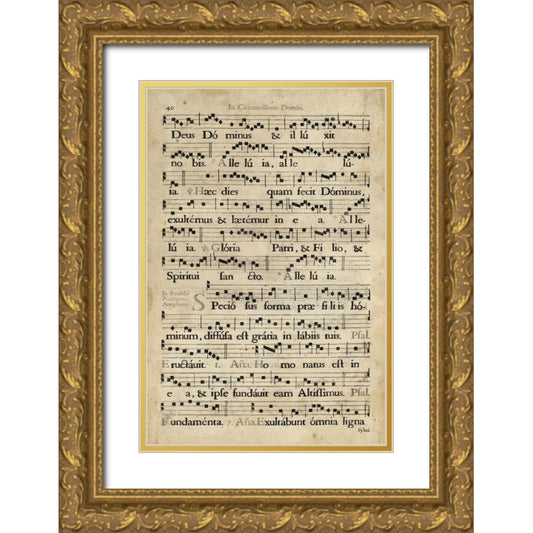 40 In Circumcisione Domini.
Deus Dó minus & il lú xit
no bis. Alle lú ia, al le lú-
ia. ℣. Hæc dies quam fecit Dóminus,
exultémus & lætémur in e a. Alle-
lú ia. ℣. Glória Patri, & Fí lio, &
Spiritui san cto. Alle lú ia.
In secundo
Nocturno,
Antiphona.
S Peció sus forma præ fi li is hó-
minum, diffúsa est grátia in lábiis tuis. Psal.
Eructávit. 1. Aña. Ho mo natus est in
e a, & ipse fundávit eam Altíssimus. Psal.
Fundaménta. 7. Aña. Exultábunt ómnia ligna
sylva